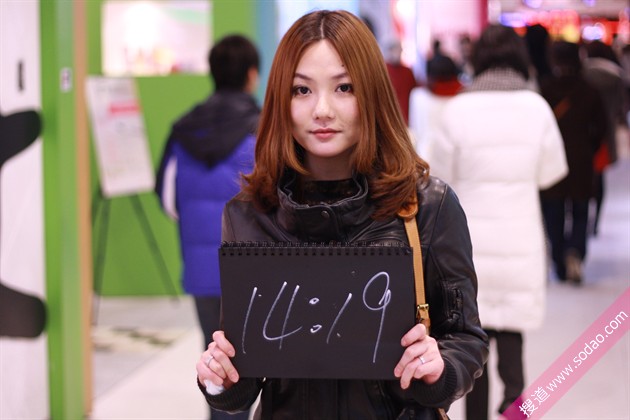 14:19
搜道www.sodao.com